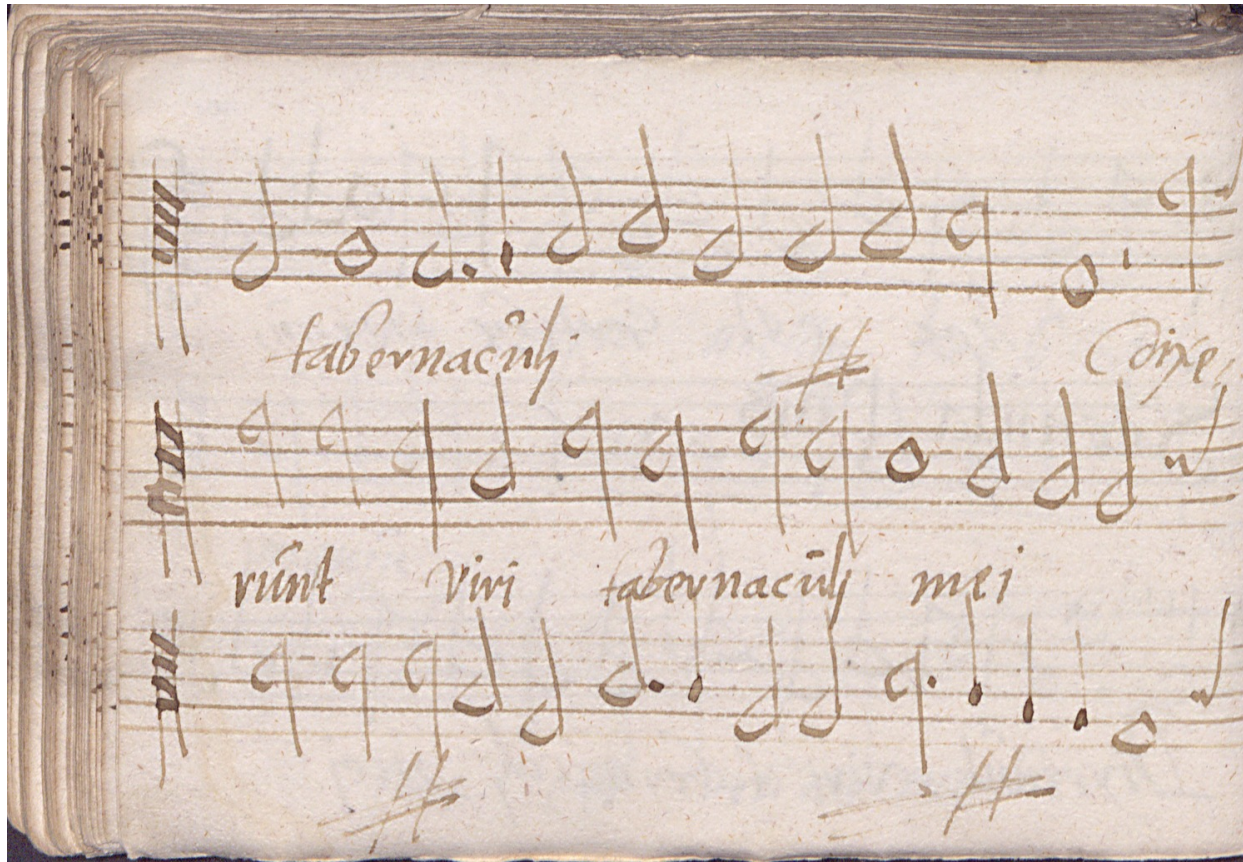 tabernacûlj Dixe,
rûnt viri tabernacûlj mei